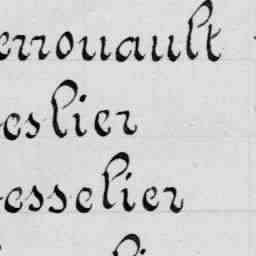 errouault
eslier
esselier